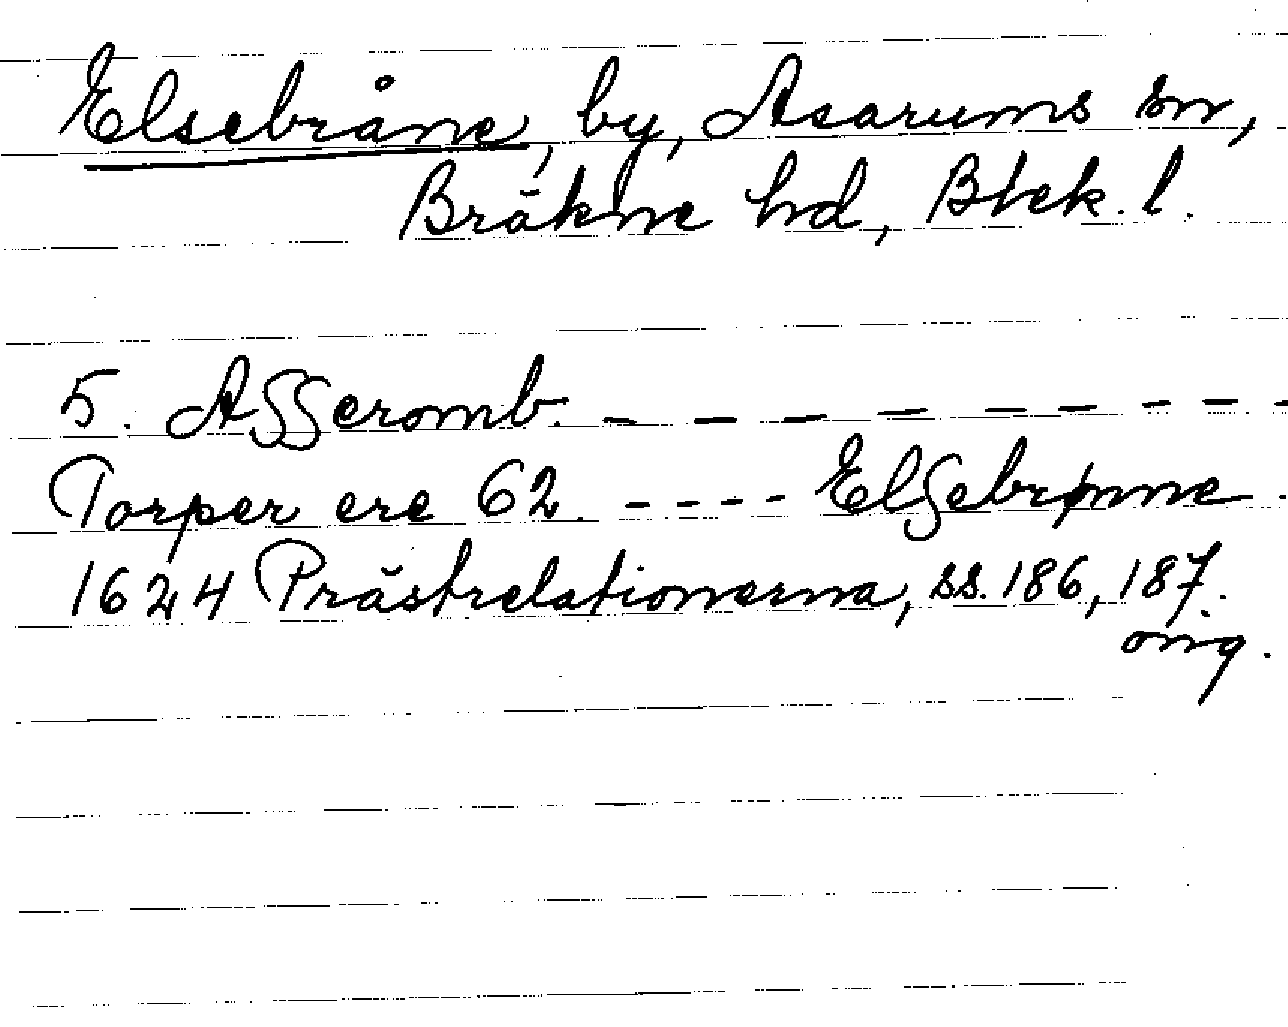 Elsebråne, by, Asarums sn,
Bräkne hd, Blek. l.
5. Aſſeromb. – – – – – – – – –
Torper ere 62. - - - - Elſebrønne.
1624 Prästrelationerna, ss. 186, 187.
orig.